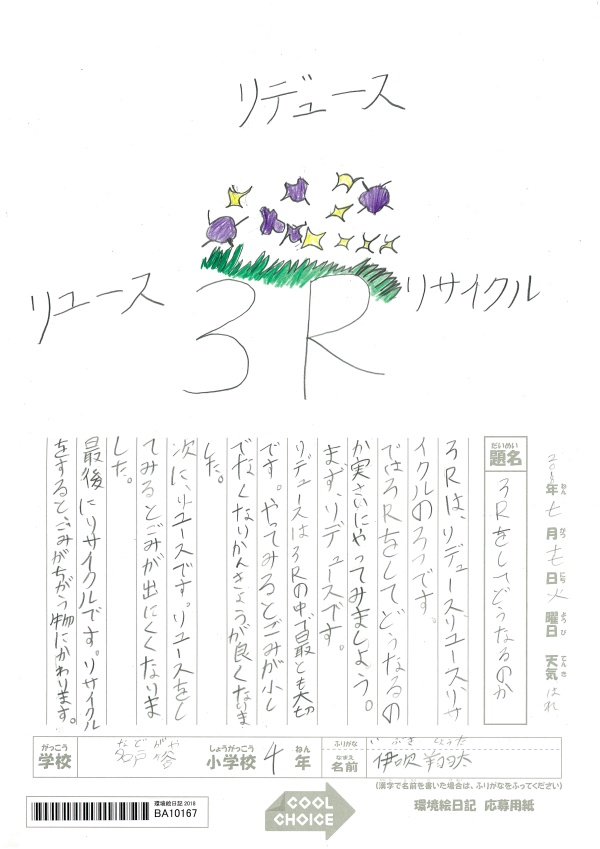 リデュース
リユース
リサイクル
3R
2018年 七月 十七日 火曜日 天気 はれ
ねん がつ にち ようび てんき
だいめい
題名
3Rをしてどうなるのか
3Rは、リデュース、リユース、リサ
イクルの3つです。
では3Rをしてどうなるの
か実さいにやってみましょう。
まず、リデュースです。
リデュースは3Rの中で最とも大切
です。やってみるとごみが少し
でなくなりかんきょうが良くなりま
した。
次に、リユースです。リユースをし
てみるとごみが出にくくなりま
した。
最後にリサイクルです。リサイクル
をすると、ごみがちがう物にかわります。
がっこう などがや しょうがっこう ねん
学校 名戸ヶ谷 小学校 4 年
ふりがな いぶき しょうた
なまえ
名前 伊吹 翔太
(漢字で名前を書いた場合は、ふりがなをふってください)
環境絵日記 2018
BA10167
COOL
CHOICE
環境絵日記 応募用紙